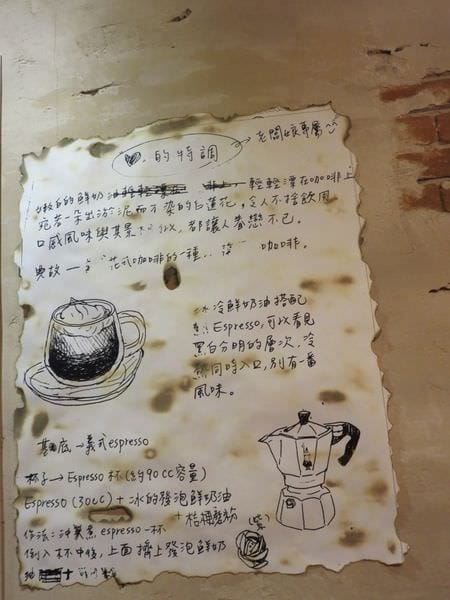 ♥.的特調 → 老闆娘專屬
嫩白的鮮奶油 輕輕漂在咖啡上
宛若一朵出淤泥而不染的白蓮花,令人不捨飲用
口感風味與其景 都讓人眷戀不已。
典故一 花式咖啡的一種 咖啡。
冰冷鮮奶油搭配
Espresso,可以看見
黑白分明的層次,冷
熱同時入口,別有一番
風味。
基底→義式espresso
杯子→Espresso 杯(約90cc容量)
Espresso(30cc)+冰的發泡鮮奶油
+桔梗
作法:沖煮 espresso一杯
倒入杯中後,上面擠上發泡鮮奶
油